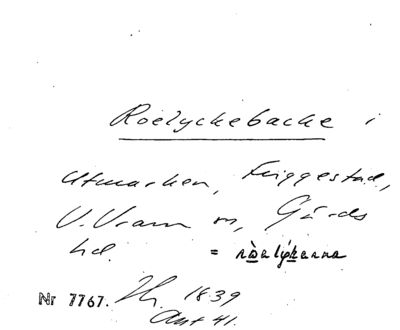 Roelyckebacke i
Utmarken, Friggestad,
V. Vram sn, Gärds
hd. = ròalýkærna
Nr 7767. Jh. 1839
Akt 41.